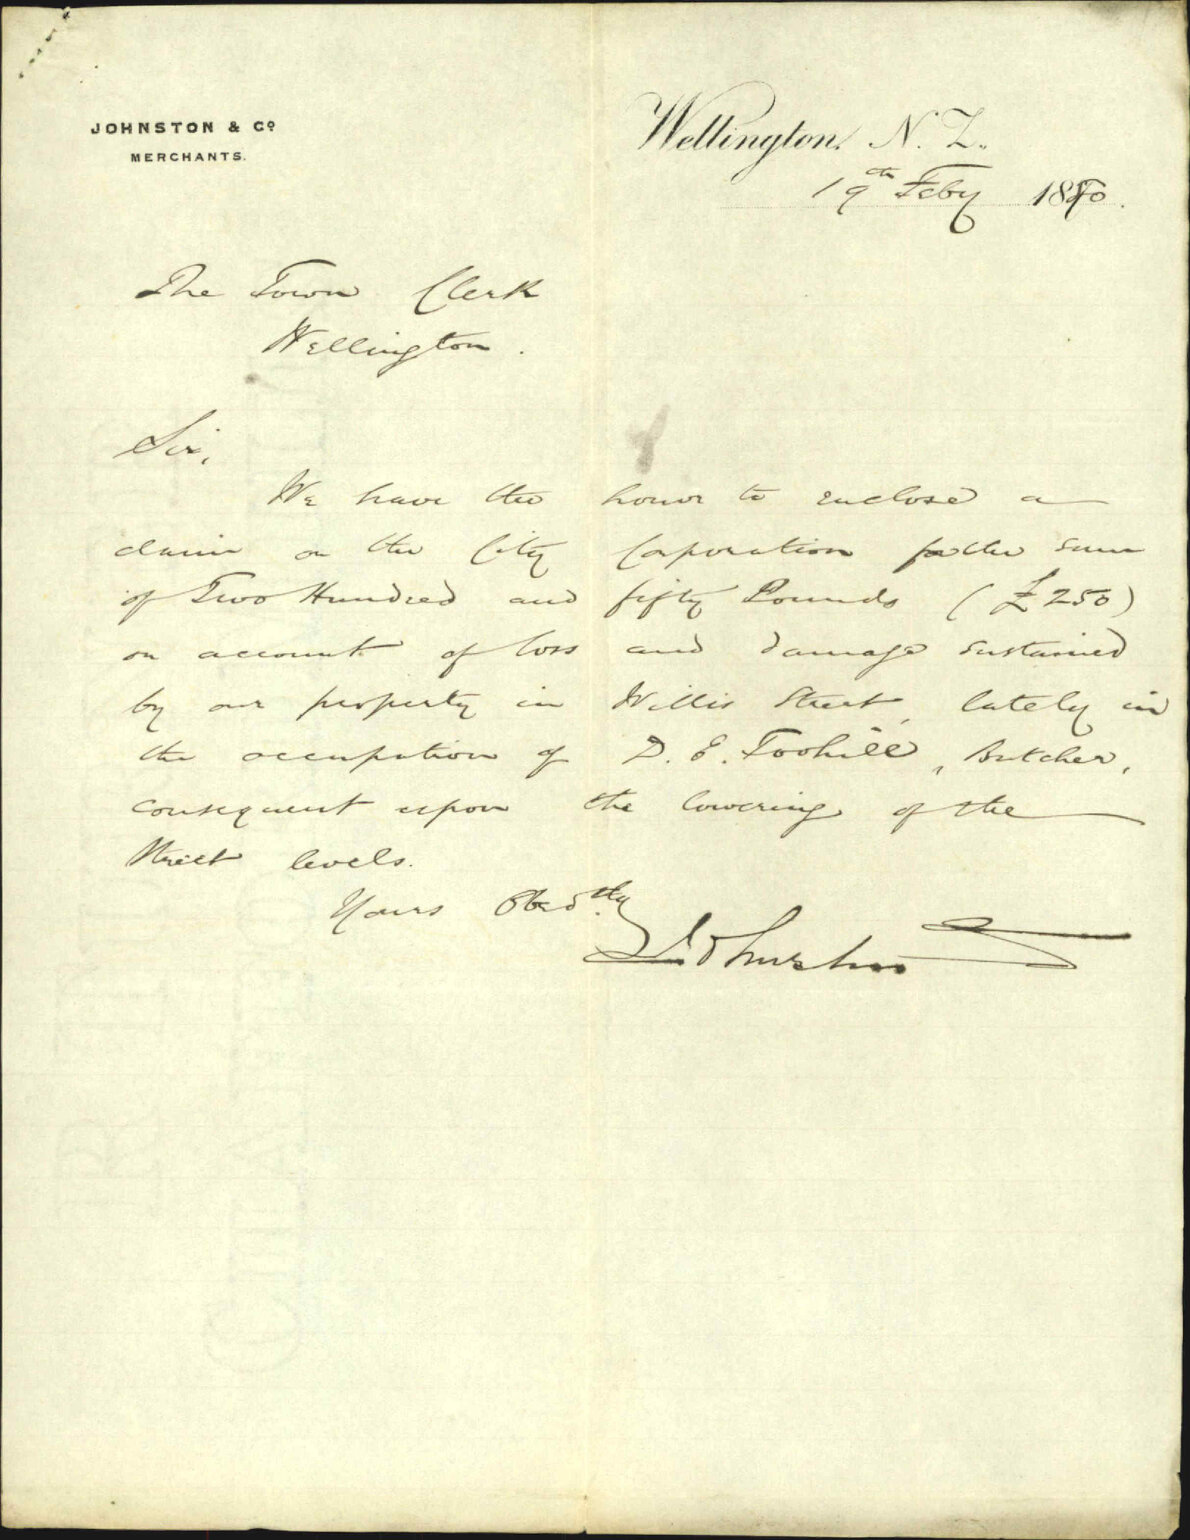 JOHNSTON & Co
MERCHANTS.
Wellington, N.Z.
19th Feby 1880.
The Town Clerk
Wellington.
Sir,
We have the honor to enclose a
claim on the City Corporation for the sum
of Two Hundred and fifty Pounds (£250)
on account of loss and damage sustained
by our property in Willis Street, lately in
the occupation of D. E. Toohill, Butcher,
consequent upon the lowering of the
Street levels.
Yours Obedtly
Johnston